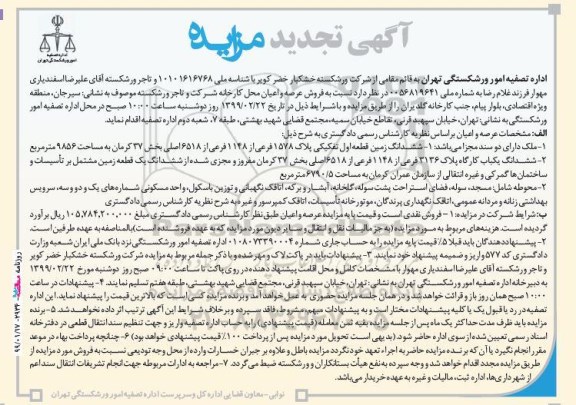 آگهی تجدید مزایده
اداره تصفیه امور ورشکستگی تهران
اداره تصفیه امور ورشکستگی تهران به قائم مقامی از شرکت ورشکسته خشکبار خضر کویر با شناسه ملی ۱۰۱۰۱۶۱۶۷۶۸ و تاجر ورشکسته آقای علیرضا اسفندیاری
مهوار فرزند غلام رضا به شماره ملی ۰۰۵۶۸۱۹۶۴۱ در نظر دارد نسبت به فروش عرصه و اعیان محل کارخانه شرکت و تاجر ورشکسته موصوف به نشانی: سیرجان، منطقه
ویژه اقتصادی، بلوار پیام، جنب کارخانه گلدیران را از طریق مزایده و با شرایط ذیل در تاریخ ۱۳۹۹/۰۲/۲۲ روز دوشنبه ساعت ۱۰:۰۰ صبح در محل اداره تصفیه امور
ورشکستگی به نشانی: تهران، خیابان سپهبد قرنی، تقاطع خیابان سمیه، مجتمع قضایی شهید بهشتی، طبقه ۷، شعبه دوم اداره تصفیه اقدام نماید.
الف: مشخصات عرصه و اعیان براساس نظریه کارشناس رسمی دادگستری به شرح ذیل:
۱- ملک دارای دو سند مجزا می‌باشد: ۱- ششدانگ زمین قطعه اول تفکیکی پلاک ۱۵۷۸ فرعی از ۱۱۴۸ فرعی از ۶۵۱۸ اصلی بخش ۳۷ کرمان به مساحت ۹۸۵۶ مترمربع
۲- ششدانگ یکباب کارگاه پلاک ۳۱۳۶ فرعی از ۱۱۴۸ فرعی از ۶۵۱۸ اصلی بخش ۳۷ کرمان مفروز و مجزی شده از ششدانگ یک قطعه زمین مشتمل بر تأسیسات و
ساختمان‌ها گمرکی و غیره انتقالی از سازمان عمران کرمان به مساحت ۶۷۹۰/۵ مترمربع
۲- محوطه شامل: مسجد، سوله، فضای استراحت پشت سوله، گلخانه، آبشار و برکه، اتاقک نگهبانی و توزین باسکول، واحد مسکونی شماره‌های یک و دو و سه، سرویس
بهداشتی زنانه و مردانه عمومی، اتاقک نگهداری پرندگان، موتورخانه تأسیسات، اتاقک کمپرسور و غیره به شرح نظریه کارشناس رسمی دادگستری
ب: شرایط شرکت در مزایده: ۱- فروش نقدی است و قیمت پایه مزایده عرصه و اعیان طبق نظر کارشناس رسمی دادگستری مبلغ ۱۰۵,۷۸۴,۲۰۰,۰۰۰ ریال برآورد
گردیده است. هزینه‌های مربوط به مورد مزایده (به جز مالیات نقل و انتقال و سایر دیون مورد مزایده که به عهده فروشنده است) بالمناصفه به عهده طرفین است.
۲- پیشنهاددهندگان باید قبلا ۵٪ قیمت پایه مزایده را به حساب جاری شماره ۰۱۰۸۰۷۳۳۹۰۰۰۴ اداره تصفیه امور ورشکستگی نزد بانک ملی ایران شعبه وزارت
دادگستری کد ۵۷۷ واریز و ضمیمه پیشنهاد خود نمایند. ۳- پیشنهادات باید در پاکت لاک و مهر شده و با ذکر جمله مربوط به مزایده شرکت ورشکسته خشکبار خضر کویر
و تاجر ورشکسته آقای علیرضا اسفندیاری مهوار با مشخصات کامل و محل اقامت پیشنهاد دهنده در روی پاکت تا ساعت ۰۹:۰۰ صبح روز دوشنبه مورخ ۱۳۹۹/۰۲/۲۲
به دبیرخانه اداره تصفیه امور ورشکستگی تهران به نشانی: تهران، خیابان سپهبد قرنی، مجتمع قضایی شهید بهشتی، طبقه هفتم تسلیم نمایند. ۴- پیشنهادات در ساعت
۱۰:۰۰ صبح همان روز باز و قرائت خواهد شد و در همان جلسه مزایده حضوری به عمل خواهد آمد و برنده مزایده کسی است که بالاترین قیمت را پیشنهاد نماید. این اداره
تصفیه در رد یا قبول یک یا کلیه پیشنهادات مختار است و به پیشنهادات مبهم، مشروط، فاقد سپرده و برخلاف شرایط این آگهی ترتیب اثر داده نخواهد شد. ۵- برنده
مزایده باید ظرف مدت حداکثر یک ماه پس از جلسه مزایده بقیه ثمن معامله (قیمت پیشنهادی) را به حساب اداره تصفیه واریز و جهت تنظیم سند انتقال قطعی در دفترخانه
اسناد رسمی تعیین شده از سوی اداره حاضر شود. (بدیهی است تحویل مورد مزایده پس از پرداخت ۱۰۰٪ قیمت پیشنهادی خواهد بود) ۶- چنانچه پرداخت بهاء در موعد
مقرر انجام نگیرد یا آن که برنده مزایده حاضر به اجراء تعهد خود نگردد مزایده باطل و علاوه بر جبران خسارات وارده از محل وجه تودیعی نسبت به فروش مورد مزایده از
طریق مزایده مجدد اقدام خواهد شد و وجه سپرده به نفع هیأت بستانکاران و ورشکسته ضبط می‌گردد. ۷- مراجعه به ادارات مربوطه جهت انجام تشریفات انتقال سند اعم
از شهرداری‌ها، اداره ثبت، مالیات و غیره به عهده خریدار می‌باشد.
نوایی - معاون قضایی اداره کل و سرپرست اداره تصفیه امور ورشکستگی تهران
روزنامه ۹۹/۰۱/۱۷-۰۲۹۳۴